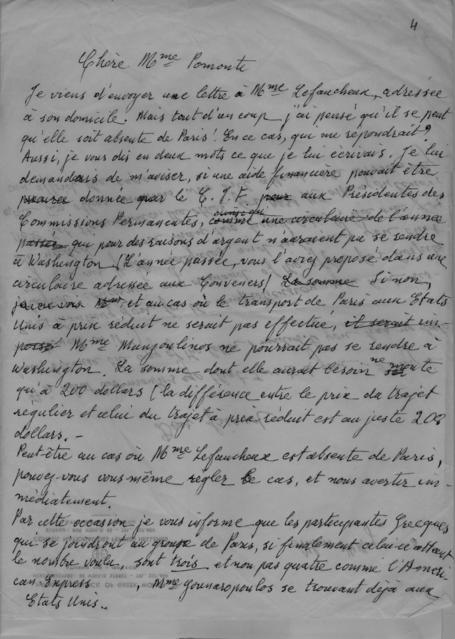 4
Chère Mme Pomonti
Je viens d'envoyer une lettre à Mme Lefaucheux, adressée
à son domicile. Mais tout d'un coup j'ai pensé qu'il se peut
qu'elle soit absente de Paris! En ce cas, qui me répondrait?
Aussi, je vous dis en deux mots ce que je lui écrivais. Je lui
demandais de m'aviser, si une aide financière pouvait être
donnée par le C.I.F. aux Présidentes des
Commissions Permanentes, ainsi que circulaire de l'année
qui pour des raisons d'argent n'auraient pu se rendre
à Washington (L'année passée, vous l'avez proposé dans une
circulaire adressée aux Conveners) Sinon,
et au cas où le transport de Paris aux Etats
Unis à prix réduit ne serait pas effectué,
Mme ne pourrait pas se rendre à
Washington. La somme dont elle aurait besoin ne monte
qu'à 200 dollars (la différence entre le prix du trajet
regulier et celui du trajet à prix réduit est au juste 208
dollars. -
Peut-être au cas où Mme Lefaucheux est absente de Paris,
pouvez-vous vous-même régler le cas, et nous avertir im-
médiatement.
Par cette occasion je vous informe que les participantes Grecques
qui se joindront au groupe de Paris, si finalement celui-ci atteint
le nombre voulu, sont trois et non pas quatre comme l'Ameri
can Express , Mme Gounaropoulos se trouvant déjà aux
Etats Unis.